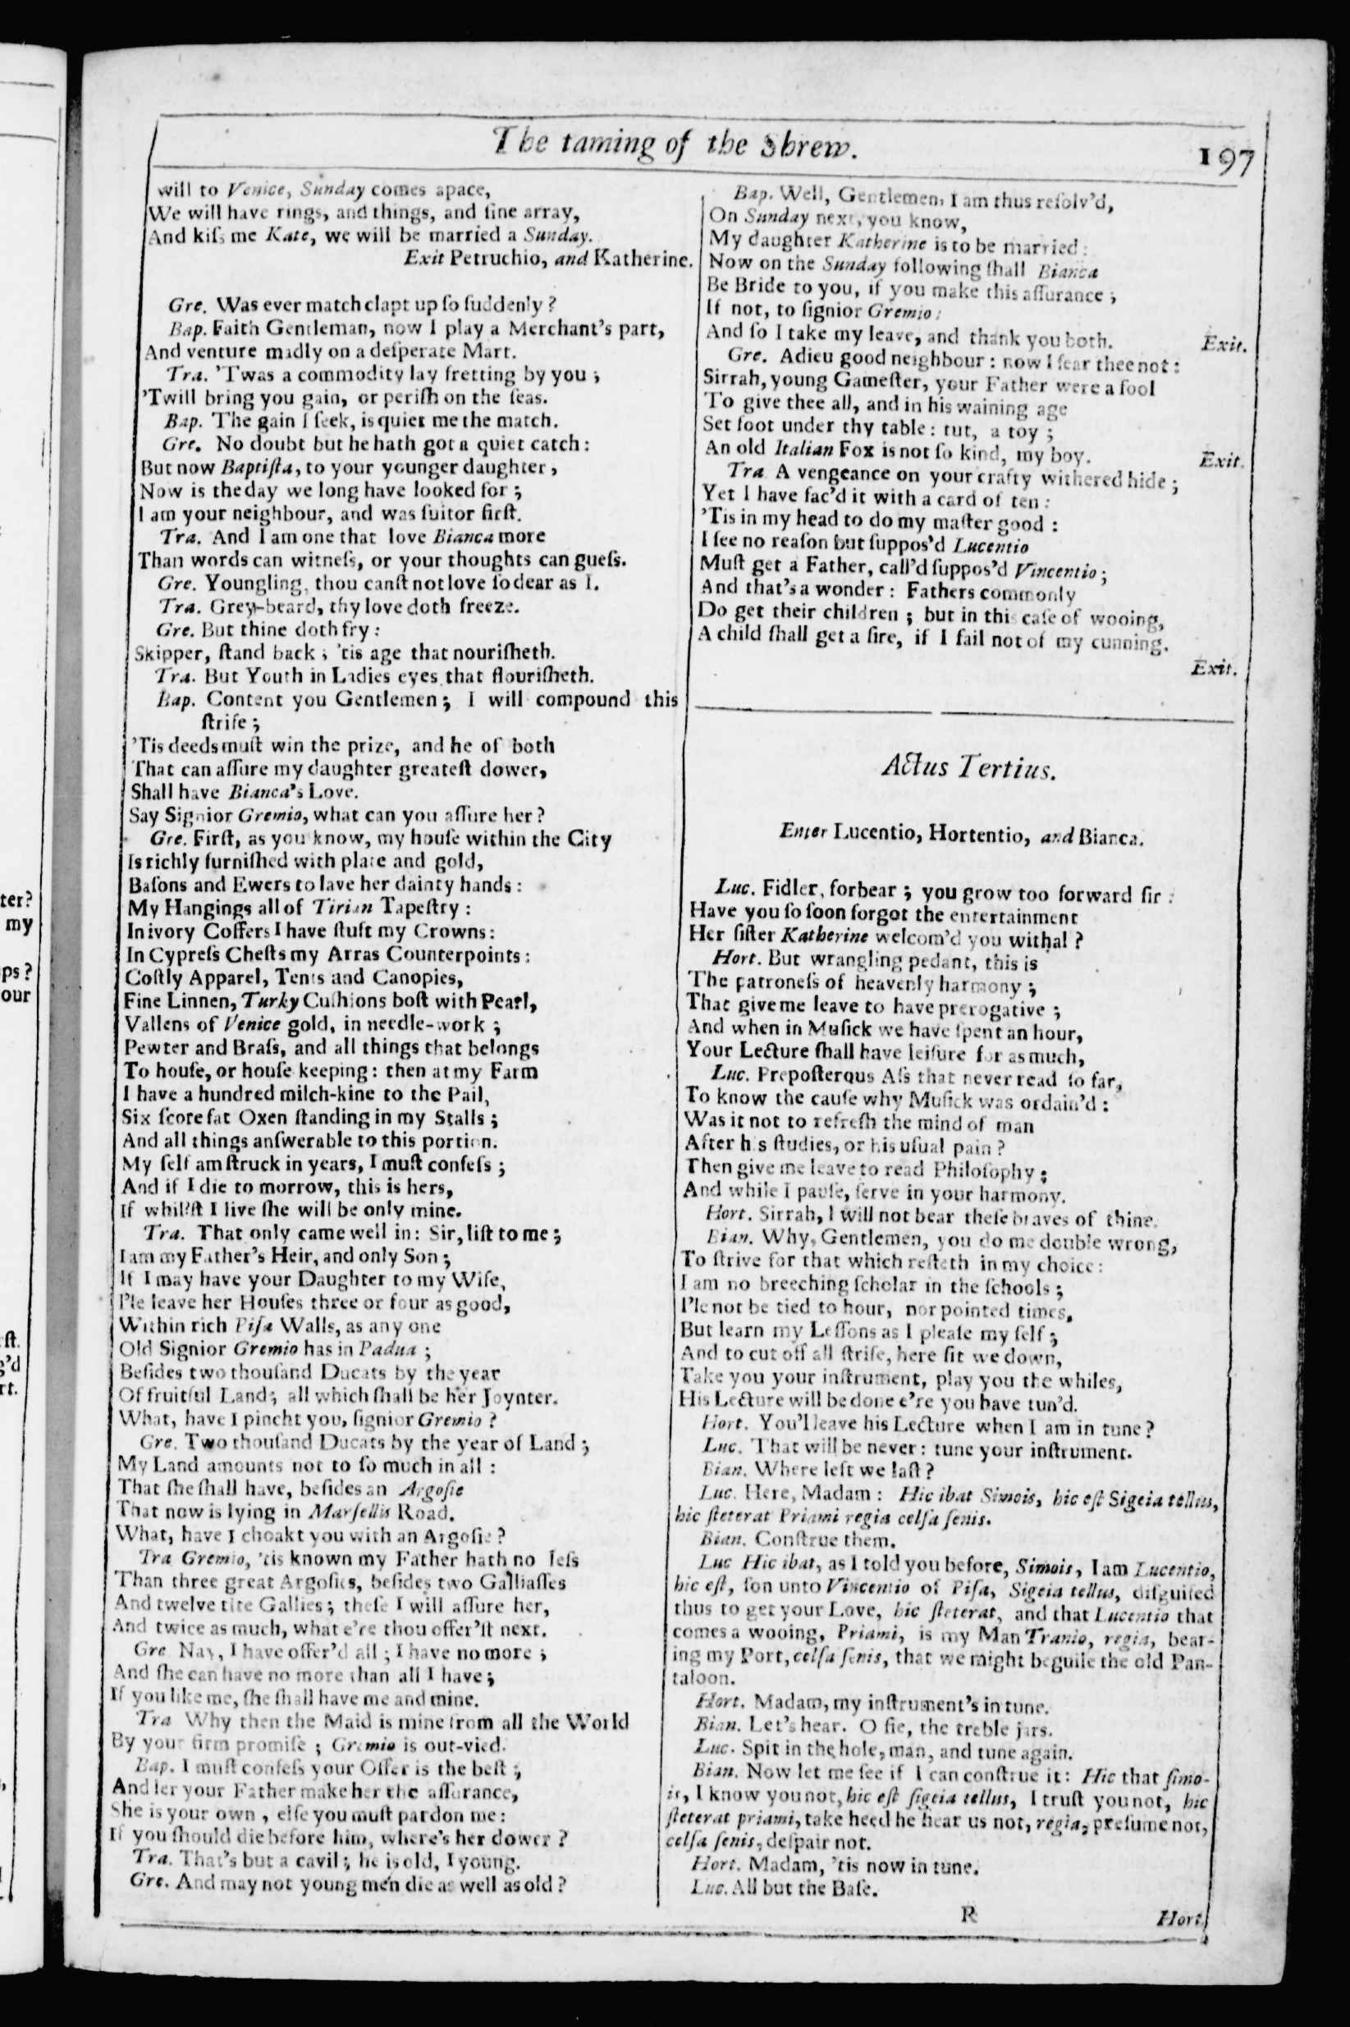 The taming of the Shrew.
197
will to Venice, Sunday comes apace,
We will have rings, and things, and fine array,
And kiſs me Kate, we will be married a Sunday.
Exit Petruchio, and Katherine.
Gre. Was ever match clapt up ſo ſuddenly?
Bap. Faith Gentleman, now I play a Merchant's part,
And venture madly on a deſperate Mart.
Tra. 'Twas a commodity lay fretting by you;
'Twill bring you gain, or periſh on the ſeas.
Bap. The gain I ſeek, is quiet me the match.
Gre. No doubt but he hath got a quiet catch:
But now Baptiſta, to your younger daughter,
Now is the day we long have looked for;
I am your neighbour, and was ſuitor firſt.
Tra. And I am one that love Bianca more
Than words can witneſs, or your thoughts can gueſs.
Gre. Youngling, thou canſt not love ſo dear as I.
Tra. Grey-beard, thy love doth freeze.
Gre. But thine doth fry:
Skipper, ſtand back; 'tis age that nouriſheth.
Tra. But Youth in Ladies eyes that flouriſheth.
Bap. Content you Gentlemen; I will compound this
ſtrife;
'Tis deeds muſt win the prize, and he of both
That can aſſure my daughter greateſt dower,
Shall have Bianca's Love.
Say Signior Gremio, what can you aſſure her?
Gre. Firſt, as you know, my houſe within the City
Is richly furniſhed with plate and gold,
Baſons and Ewers to lave her dainty hands:
My Hangings all of Tirian Tapeſtry:
In ivory Coffers I have ſtuft my Crowns:
In Cypreſs Cheſts my Arras Counterpoints:
Coſtly Apparel, Tents and Canopies,
Fine Linnen, Turky Cuſhions boſt with Pearl,
Vallens of Venice gold, in needle-work;
Pewter and Braſs, and all things that belongs
To houſe, or houſe keeping: then at my Farm
I have a hundred milch-kine to the Pail,
Six ſcore fat Oxen ſtanding in my Stalls;
And all things anſwerable to this portion.
My ſelf am ſtruck in years, I muſt confeſs;
And if I die to morrow, this is hers,
If whil'ſt I live ſhe will be only mine.
Tra. That only came well in: Sir, liſt to me;
I am my Father's Heir, and only Son;
If I may have your Daughter to my Wife,
I'le leave her Houſes three or four as good,
Within rich Piſa Walls, as any one
Old Signior Gremio has in Padua;
Beſides two thouſand Ducats by the year
Of fruitful Land; all which ſhall be her Joynter.
What, have I pincht you, ſignior Gremio?
Gre. Two thouſand Ducats by the year of Land;
My Land amounts not to ſo much in all:
That ſhe ſhall have, beſides an Argoſie
That now is lying in Marſellis Road.
What, have I choakt you with an Argoſie?
Tra Gremio, 'tis known my Father hath no leſs
Than three great Argoſies, beſides two Galliaſſes
And twelve tite Gallies; theſe I will aſſure her,
And twice as much, what e're thou offer'ſt next.
Gre Nay, I have offer'd all; I have no more;
And ſhe can have no more than all I have;
If you like me, ſhe ſhall have me and mine.
Tra Why then the Maid is mine from all the World
By your firm promiſe; Gremio is out-vied.
Bap. I muſt confeſs your Offer is the beſt;
And let your Father make her the aſſurance,
She is your own, elſe you muſt pardon me:
If you ſhould die before him, where's her dower?
Tra. That's but a cavil; he is old, I young.
Gre. And may not young men die as well as old?
Bap. Well, Gentlemen, I am thus reſolv'd,
On Sunday next, you know,
My daughter Katherine is to be married:
Now on the Sunday following ſhall Bianca
Be Bride to you, if you make this aſſurance;
If not, to ſignior Gremio:
And ſo I take my leave, and thank you both.
Exit.
Gre. Adieu good neighbour: now I fear thee not:
Sirrah, young Gameſter, your Father were a fool
To give thee all, and in his waining age
Set foot under thy table: tut, a toy;
An old Italian Fox is not ſo kind, my boy.
Exit.
Tra A vengeance on your crafty withered hide;
Yet I have fac'd it with a card of ten:
'Tis in my head to do my maſter good:
I ſee no reaſon but ſuppos'd Lucentio
Muſt get a Father, call'd ſuppos'd Vincentio;
And that's a wonder: Fathers commonly
Do get their children; but in this caſe of wooing,
A child ſhall get a ſire, if I fail not of my cunning.
Exit.
Actus Tertius.
Enter Lucentio, Hortentio, and Bianca.
Luc. Fidler, forbear; you grow too forward ſir:
Have you ſo ſoon forgot the entertainment
Her ſiſter Katherine welcom'd you withal?
Hort. But wrangling pedant, this is
The patroneſs of heavenly harmony;
That give me leave to have prerogative;
And when in Muſick we have ſpent an hour,
Your Lecture ſhall have leiſure for as much,
Luc. Prepoſterous Aſs that never read ſo far,
To know the cauſe why Muſick was ordain'd:
Was it not to refreſh the mind of man
After h s ſtudies, or his uſual pain?
Then give me leave to read Philoſophy;
And while I pauſe, ſerve in your harmony.
Hort. Sirrah, I will not bear theſe braves of thine.
Bian. Why, Gentlemen, you do me double wrong,
To ſtrive for that which reſteth in my choice:
I am no breeching ſcholar in the ſchools;
I'le not be tied to hour, nor pointed times,
But learn my Leſſons as I pleaſe my ſelf;
And to cut off all ſtrife, here ſit we down,
Take you your inſtrument, play you the whiles,
His Lecture will be done e're you have tun'd.
Hort. You'll leave his Lecture when I am in tune?
Luc. That will be never: tune your inſtrument.
Bian. Where left we laſt?
Luc. Here, Madam: Hic ibat Simois, hic eſt Sigeia tellus,
hic ſteterat Priami regia celſa ſenis.
Bian. Conſtrue them.
Luc Hic ibat, as I told you before, Simois, I am Lucentio,
hic eſt, ſon unto Vincentio of Piſa, Sigeia tellus, diſguiſed
thus to get your Love, hic ſteterat, and that Lucentio that
comes a wooing, Priami, is my Man Tranio, regia, bear-
ing my Port, celſa ſenis, that we might beguile the old Pan-
taloon.
Hort. Madam, my inſtrument's in tune.
Bian. Let's hear. O fie, the treble jars.
Luc. Spit in the hole, man, and tune again.
Bian. Now let me ſee if I can conſtrue it: Hic that ſimo-
is, I know you not, hic eſt ſigeia tellus, I truſt you not, hic
ſteterat priami, take heed he hear us not, regia, preſume not,
celſa ſenis, deſpair not.
Hort. Madam, 'tis now in tune.
Luc. All but the Baſe.
R
Hort.
ter?
my
ps?
our
ſt.
g'd
rt.